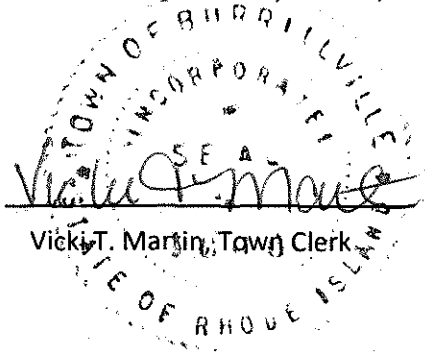 TOWN OF BURRILLVILLE
INCORPORATED
SEAL
Vicki T. Martin
Vicki T. Martin, Town Clerk
STATE OF RHODE ISLAND